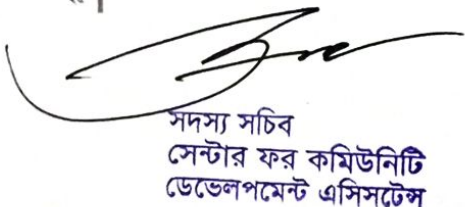 সদস্য সচিব
সেন্টার ফর কমিউনিটি
ডেভেলপমেন্ট এসিসটেন্স